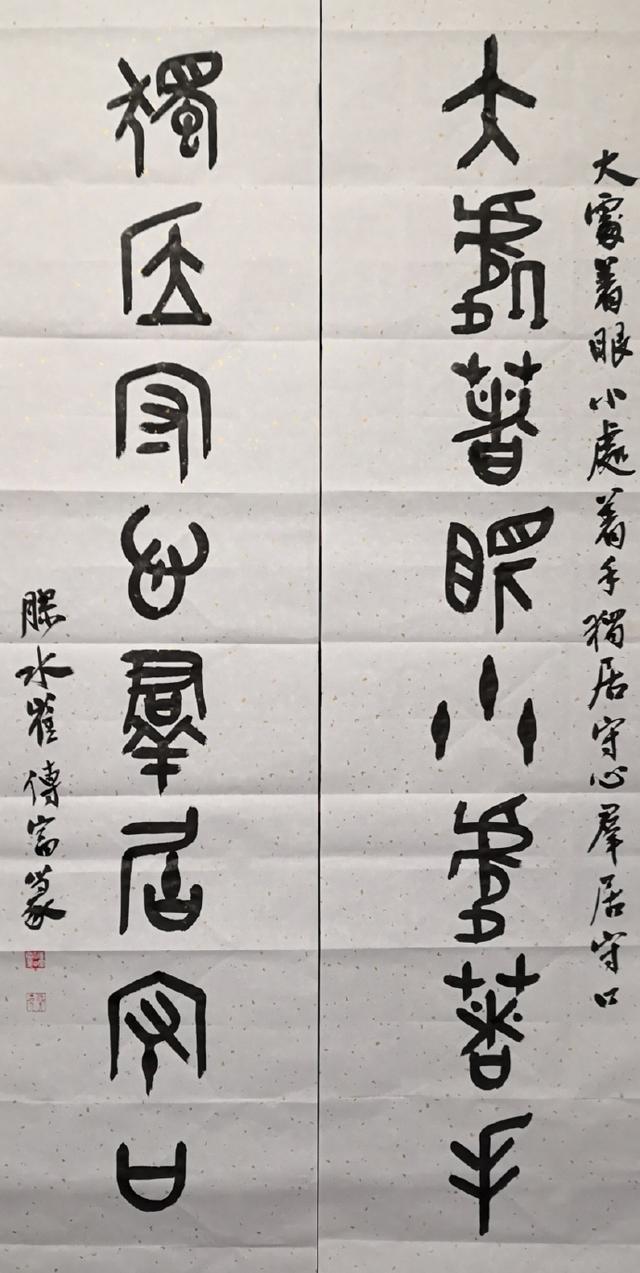 大處着眼小處着手獨居守心羣居守口
大處著眼小處著手
獨居守心羣居守口
膠水崔傳富篆